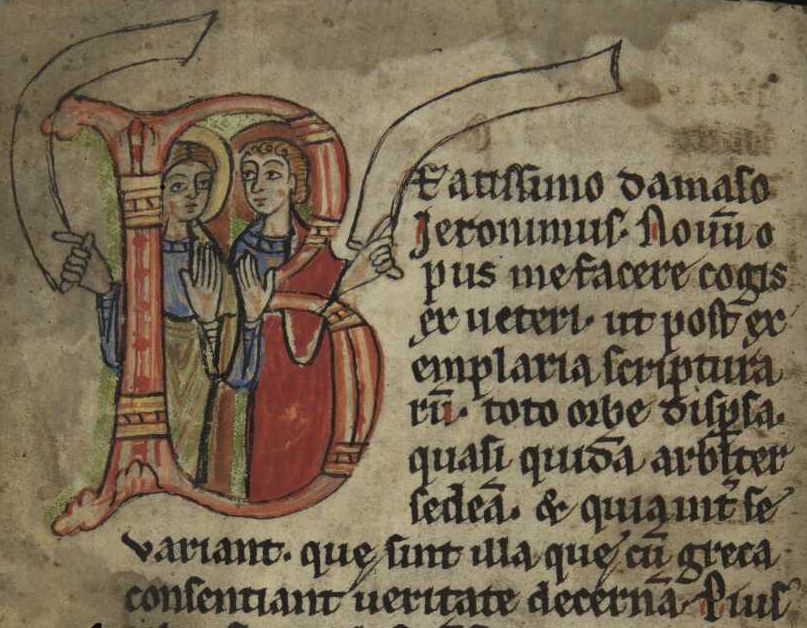 Beatissimo damaso
Jeronimus. Nouū o
pus me facere cogis
ex ueteri. ut post ex
emplaria scriptura
rū. toto orbe dispsa.
quasi quidā arbiter
sedeā. & quia int̄ se
variant. que sint illa que cū greca
consentiant ueritate decernā. Pius